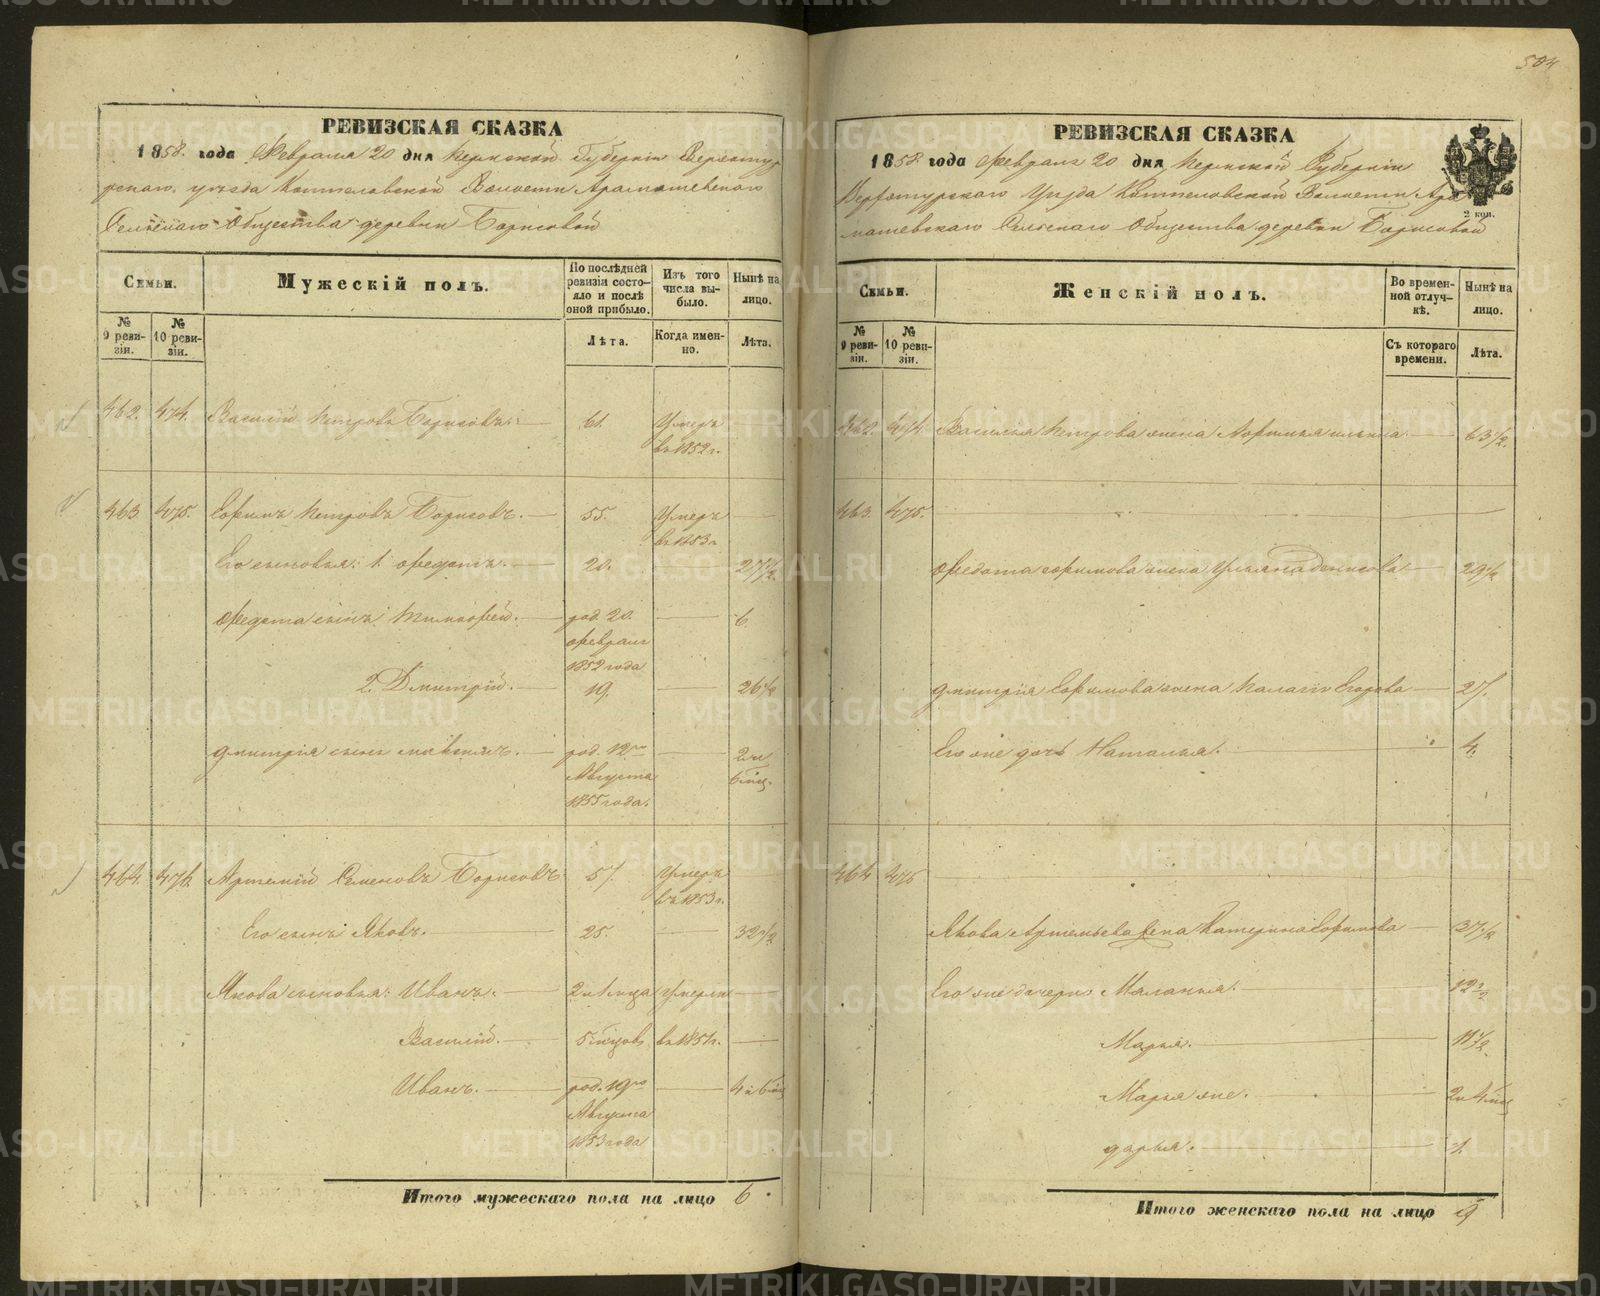 504
РЕВИЗСКАЯ СКАЗКА
1858. года Февраля 20 дня Пермской Губернiи Верхотур
скаго уезда Коптеловской Волости Арамашевскаго
Сельскаго Общества деревни Борисовой
Семьи.
Мужескiй полъ.
По послѣдней ревизiи состояло и послѣ оной прибыло.
Изъ того числа выбыло.
Нынѣ на лицо.
№ 9 ревизiи.
№ 10 ревизiи.
Лѣта.
Когда именно.
Лѣта.
462. 474. Василiй Петровъ Борисовъ. 61. Умеръ
въ 1852 г.
463 475. Ефимъ Петровъ Борисовъ. 55. Умеръ
въ 1853 г
Его сыновья: 1. Федотъ. 20. 27 1/2
Федота сынъ Тимофей. род. 20. 6.
Февраля
1852 года
2. Дмитрiй. 19. 26 1/2
Дмитрiя сынъ род. 12го 2 и
Августа 6 мѣс.
1855 года.
464. 476. Артемiй Семеновъ Борисовъ 51. Умеръ
въ 1853 г.
Его сынъ Яковъ. 25. 32 1/2
Якова сыновья: Иванъ. Умерли
Василiй. въ 1851 г.
Иванъ. род. 19го 4 и 6 мѣс
Августа
1853 года
Итого мужескаго пола на лицо 6.
РЕВИЗСКАЯ СКАЗКА
1858 года Февраля 20 дня Пермской Губернiи
Верхотурскаго Уезда Коптеловской Волости Ара
машевскаго Сельскаго Общества деревни Борисовой
2 коп.
Семьи.
Женскiй полъ.
Во временной отлучкѣ.
Нынѣ на лицо.
№ 9 ревизiи.
№ 10 ревизiи.
Съ котораго времени.
Лѣта.
462. 474. Василья Петрова жена Афимья Ильина. 63 1/2.
463. 475.
Федота Ефимова жена Ульяна Денисова 29 1/2
Дмитрiя Ефимова жена Егорова 27.
Его же дочь Наталья. 4.
464 475
Якова Артемьева жена Катерина Ефимова 37 1/2
Его же дочери Маланья. 12 1/2
Марья. 11 1/2.
Марья же. 2 и 4 мѣс
Дарья. 1.
Итого женскаго пола на лицо 9
METRIKI.GASO-URAL.RU